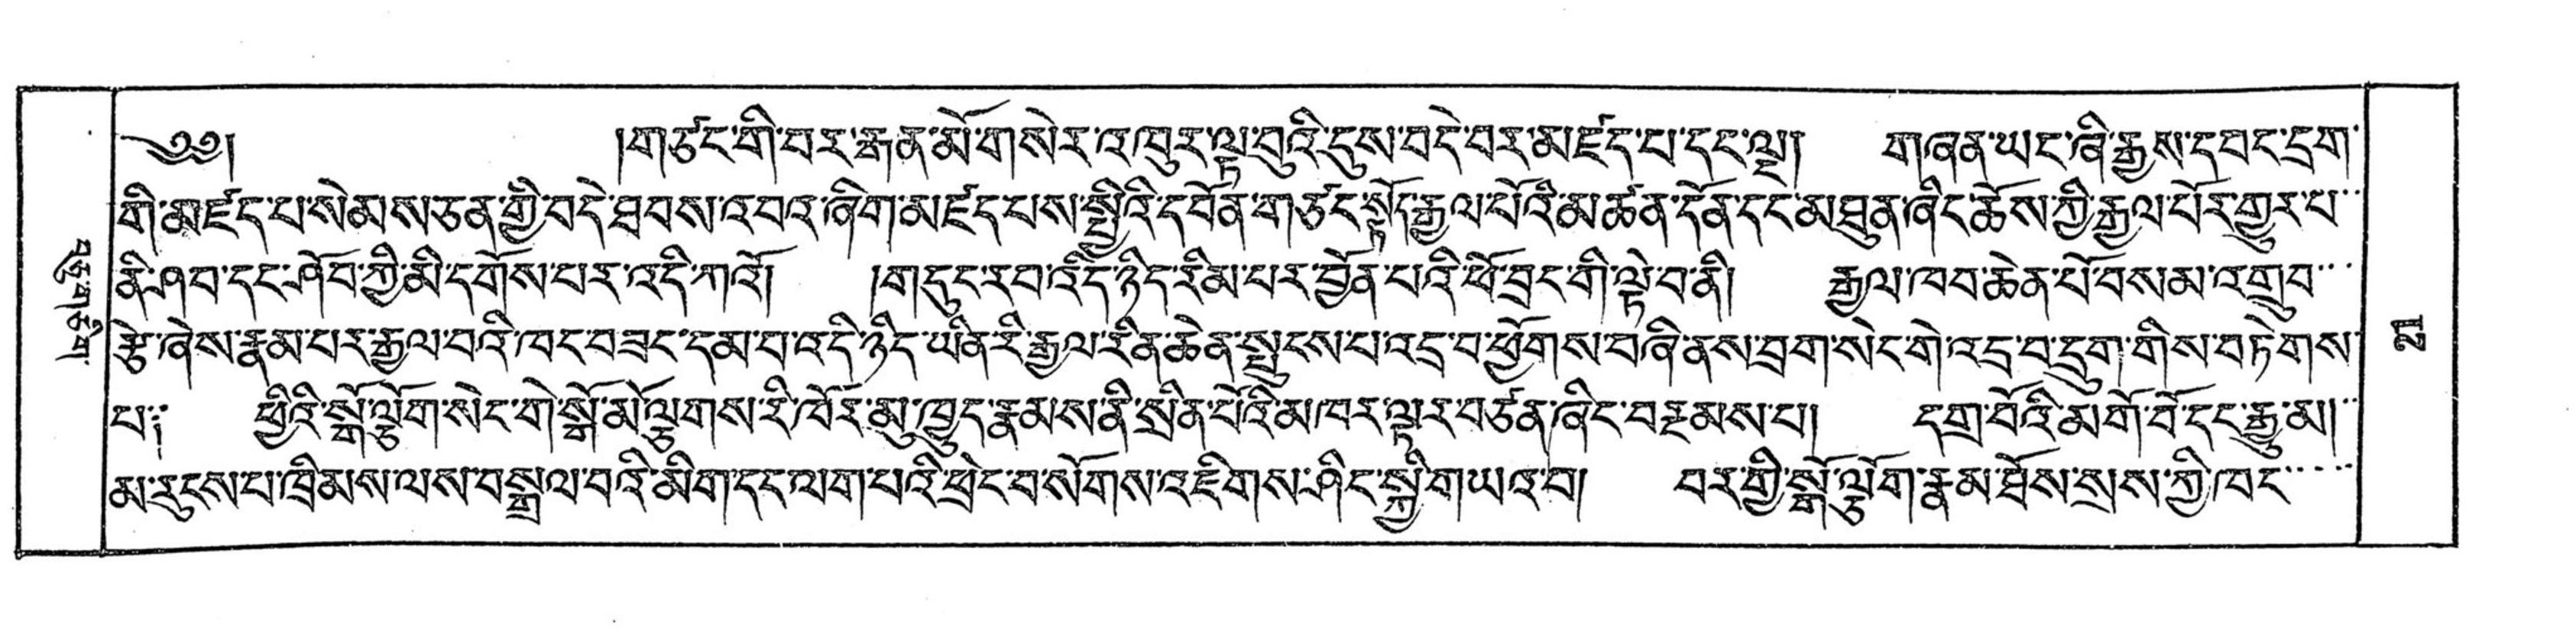 ༄༅། །གཙང་གི་བར་རྐན་མོ་གསེར་འཁུར་ལྟ་བུའི་དུས་བདེ་བར་མཛད་པ་དང་ལྔ། གཞན་ཡང་ཞི་རྒྱས་དབང་དྲག་
གི་མཛད་པ་སེམས་ཅན་གྱི་བདེ་ཐབས་འབའ་ཞིག་མཛད་པས་སྤྱིའི་དཔོན་གཙང་སྟོད་རྒྱལ་པོའི་མཚན་དོན་དང་མཐུན་ཞིང་ཆོས་ཀྱི་རྒྱལ་པོར་གྱུར་པ་
ནི་ཤབ་དང་ཤོབ་ཀྱི་མི་དགོས་པར་འདི་ཀའོ། །གདུང་རབ་འདི་ཉིད་རིམ་པར་བྱོན་པའི་ཕོ་བྲང་གི་ལྟེ་བ་ནི། རྒྱལ་ཁབ་ཆེན་པོ་བསམ་འགྲུབ་
རྩེ་ཞེས་རྣམ་པར་རྒྱལ་བའི་ཁང་བཟང་དམ་པ་འདི་ཉིད་ཡིན་རི་རྒྱལ་རིན་ཆེན་སྤུངས་པ་འདྲ་བ་ཕྱོགས་བཞི་ནས་བྲག་སེང་གེ་འདྲ་བ་དྲུག་གིས་བཏེགས་
པ༔ ཕྱིའི་སྒོ་ལྕོག་སེང་གེ་སྒོ་མོ་ལྕགས་རི་ཁོར་མུ་ཁྱུད་རྣམས་ནི་སྲིན་པོའི་མཁར་ལྟར་བཙན་ཞིང་བརྔམས་པ། དགྲ་བོའི་མགོ་བོ་དང་རྒྱུ་མ།
མ་རུངས་པ་ཁྲིམས་ལས་བསྒྲལ་བའི་མིག་དང་ལག་པའི་ཕྲེང་བ་སོགས་འཇིགས་ཤིང་སྐྱི་གཡའ་བ། བར་གྱི་སྒོ་ལྕོག་རྣམ་ཐོས་སྲས་ཀྱི་ཁང་